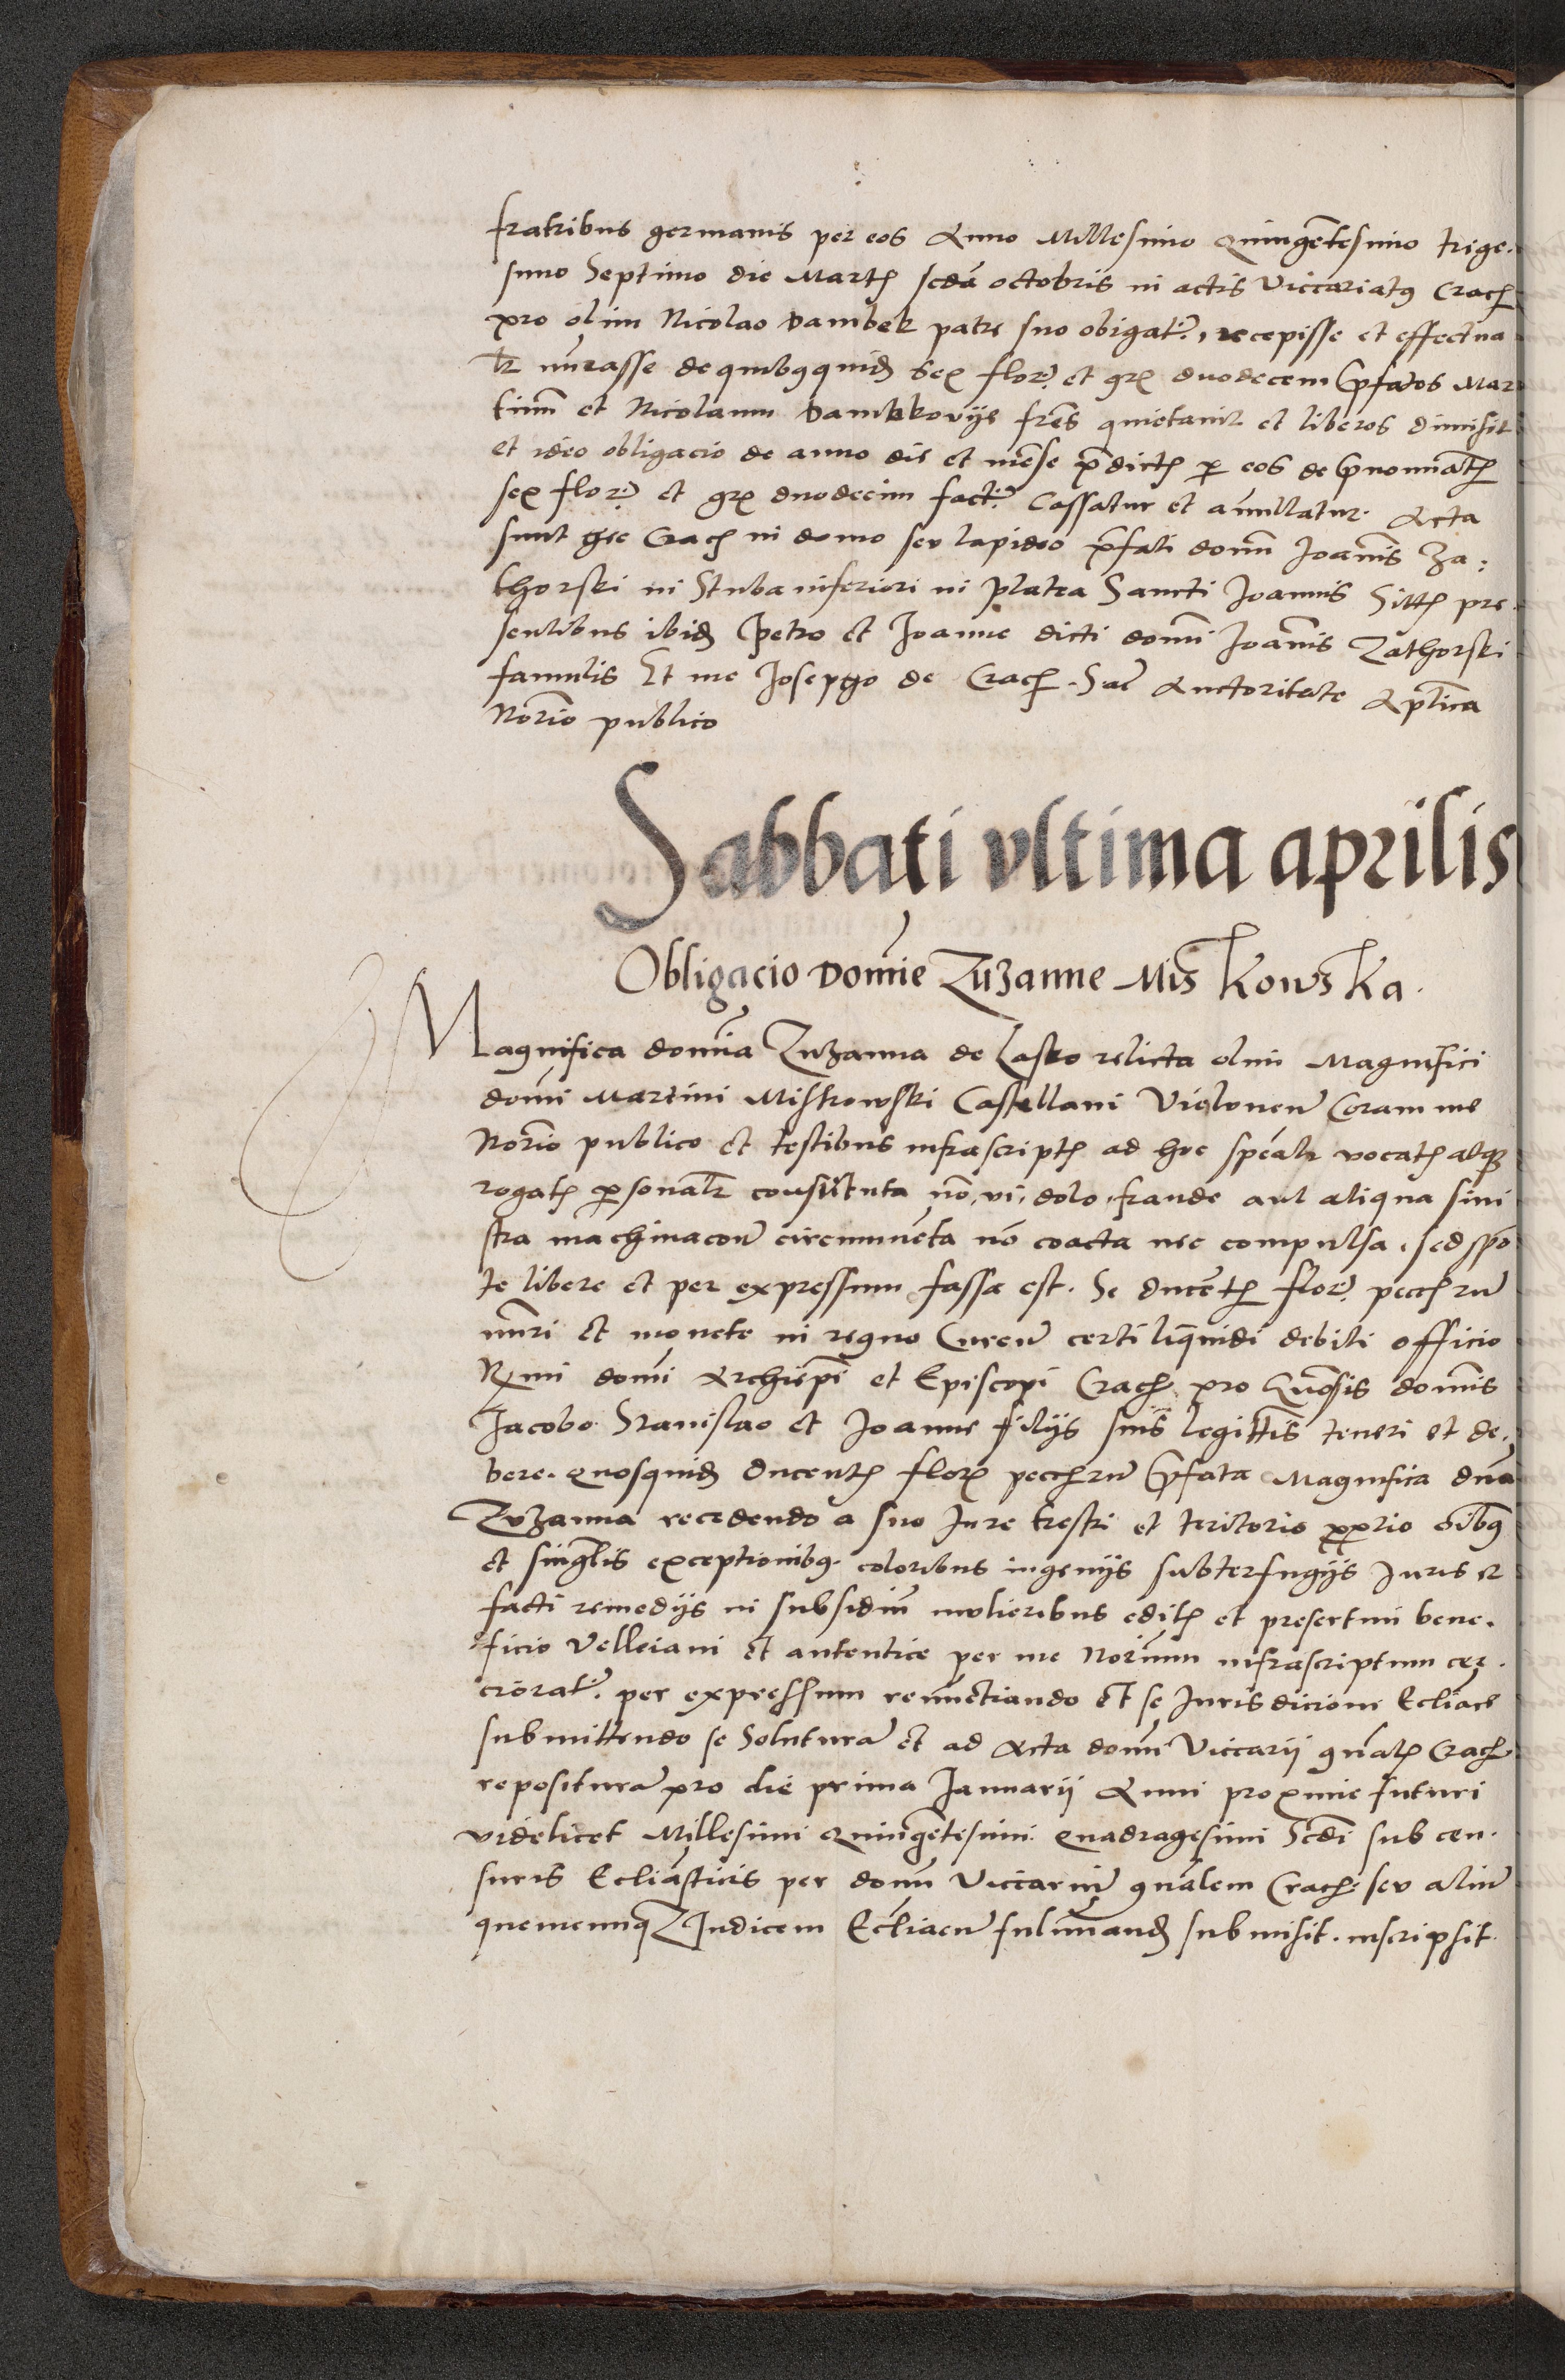 fratribus germanis per eos Anno Millesimo Quingētesimo trige.
simo Septimo die Martꝭ scdā octobris in actis Viccariatꝰ Cracꝭ
pro olim Nicolao Dambek patre suo obigat., recepisse et effectua
lr nūrasse de quibꝰquidꝭ sex flor. et grꝭ duodecem p̄fatos Mar
tinū et Nicolaum Dambkovijc frēs quietavit et liberos dimisit
et ideo obligacio de anno die et mēse p̄dictꝭ ꝑ eos de p̄nominātꝭ
sex flor. et grꝭ duodecim fact. Cassatur et anullatur. Acta
sunt hec Cracꝭ in domo seu lapideo p̄fati domī Joānis Za:
thorski in Stuba inferiori in platea Sancti Joannis Sittꝭ pre.
sentibus ibidꝭ Petro et Joanne dicti domī Joānis Zathorski
famulis Et me Josepho de Cracꝭ. Sac Auctoritate Aplica
Norio publico
Sabbati vltima aprilis
Obligacio Domīe Zuzanne Mis kows ka.
Magnifica domīa Zuzanna de Lasko relicta olim Magnifici
domī Martini Miskowski Castellani Vielunen Coram me
Norio publico et testibus infrascriptꝭ ad hoc spēalr vocatꝭ atqꝫ
rogatꝭ ꝑsonalr constituta nō, vi, dolo, fraude aut aliqua sini
stra machinacone circumuēta nō coacta nec compulsa, sed spō
te libere et per expressum fassa est. Se ducētꝭ flor. peccꝭrū
nūri et monete in regno Curen certi liquidi debiti officio
Rmi domī Archiepī et Episcopi Cracꝭ pro domīs
Jacobo Stanislao et Joanne filijs suis legittīs teneri et de,
bere. Quosquidꝭ ducentꝭ florꝭ peccꝭrū p̄fata Magnifica dna
Zuzanna recedendo a suo Jure trestri et teritorio ꝓprio oībꝰ
et singlis exceptionibꝰ. coloribus ingenijs subterfugijs Juris et
facti remedijs in subsidiū mulieribus editꝭ et presertim bene.
ficio Velleiani et autentice per me Noriūm infrascriptum cer.
ciorat. per expressum renūctiando et se Jurisdicioni Ecliace
submittendo se Soluturā et ad Acta domī Viccarij gnalꝭ Cracꝭ
repositurā pro die prima Januarij Anni proxime futuri
videlicet Millesimi Quingētesimi Quadragesimi Scdi sub cen.
suris Ecliasticis per domī Viccariū gnalem Cracꝭ seu aliū
quemcunqꝫ Judicem Ecliacū fulmināndꝭ submisit. inscripsit.